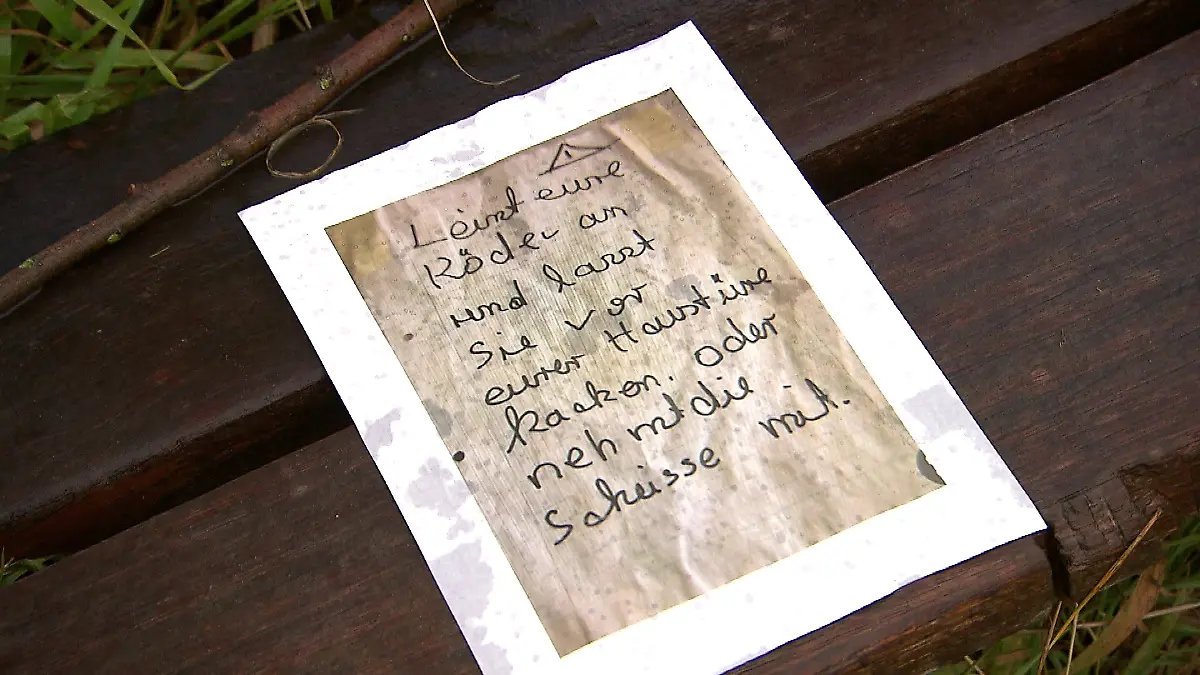 Leint eure
Köder an
und lasst
sie vor
eurer Haustüre
kacken. oder
nehmt die
Scheisse mit.